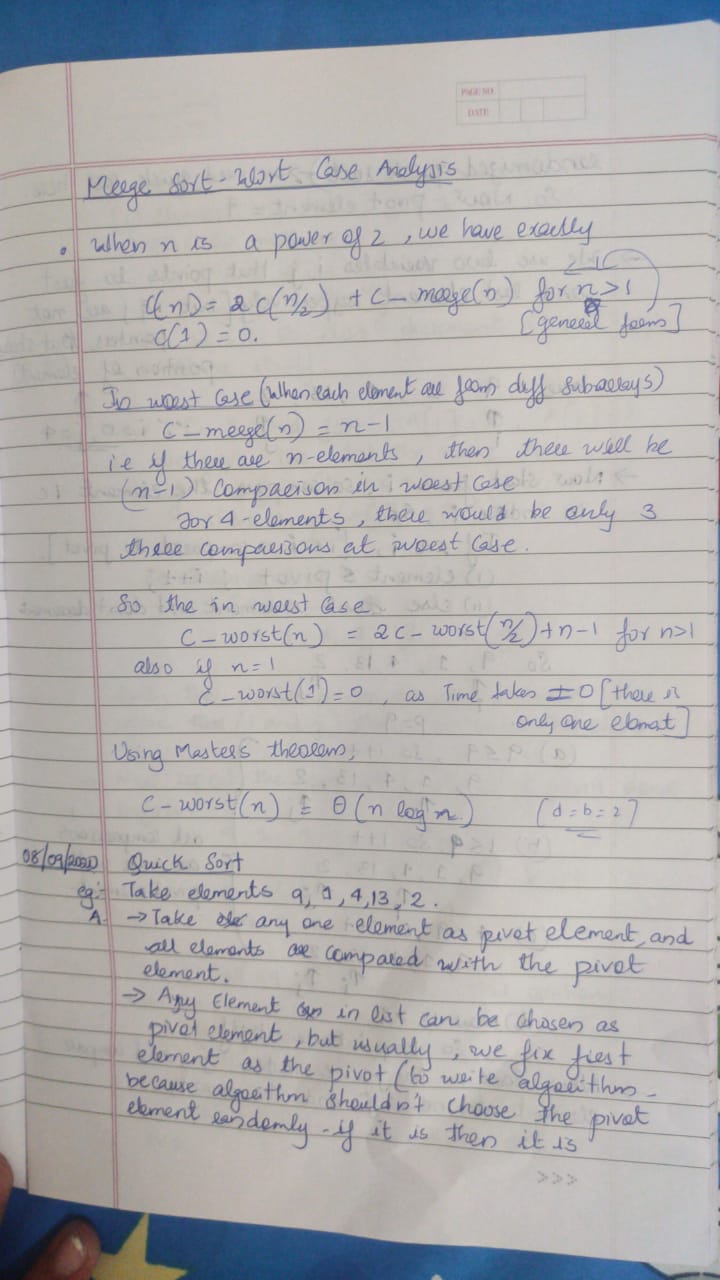 PAGE NO
DATE
Merge Sort - Worst Case Analysis
• When n is a power of 2, we have exactly
C(n) = 2 C(n/2) + C-merge(n) for n>1
C(1) = 0. [general form]
In worst case (When each element are from diff subarrays)
C-merge(n) = n-1
i.e if there are n-elements, then there will be
(n-1) comparison in worst case
for 4-elements, there would be only 3
three comparisons at worst case.
So the in worst case
C-worst(n) = 2C-worst(n/2)+n-1 for n>1
also if n=1
C-worst(1)=0, as Time takes = 0 [there is
only one elemat]
Using Master's theorem,
C-worst(n) = Θ(n log n) (d=b=2)
08/09/2020 Quick Sort
eg:- Take elements 9, 1, 4, 13, 2.
A. → Take any one element as pivot element, and
all elements are compared with the pivot
element.
→ Any Element in list can be chosen as
pivot element, but usually, we fix first
element as the pivot (to write algorithm -
because algorithm shouldn't choose the pivot
element randomly - if it is then it is
>>>